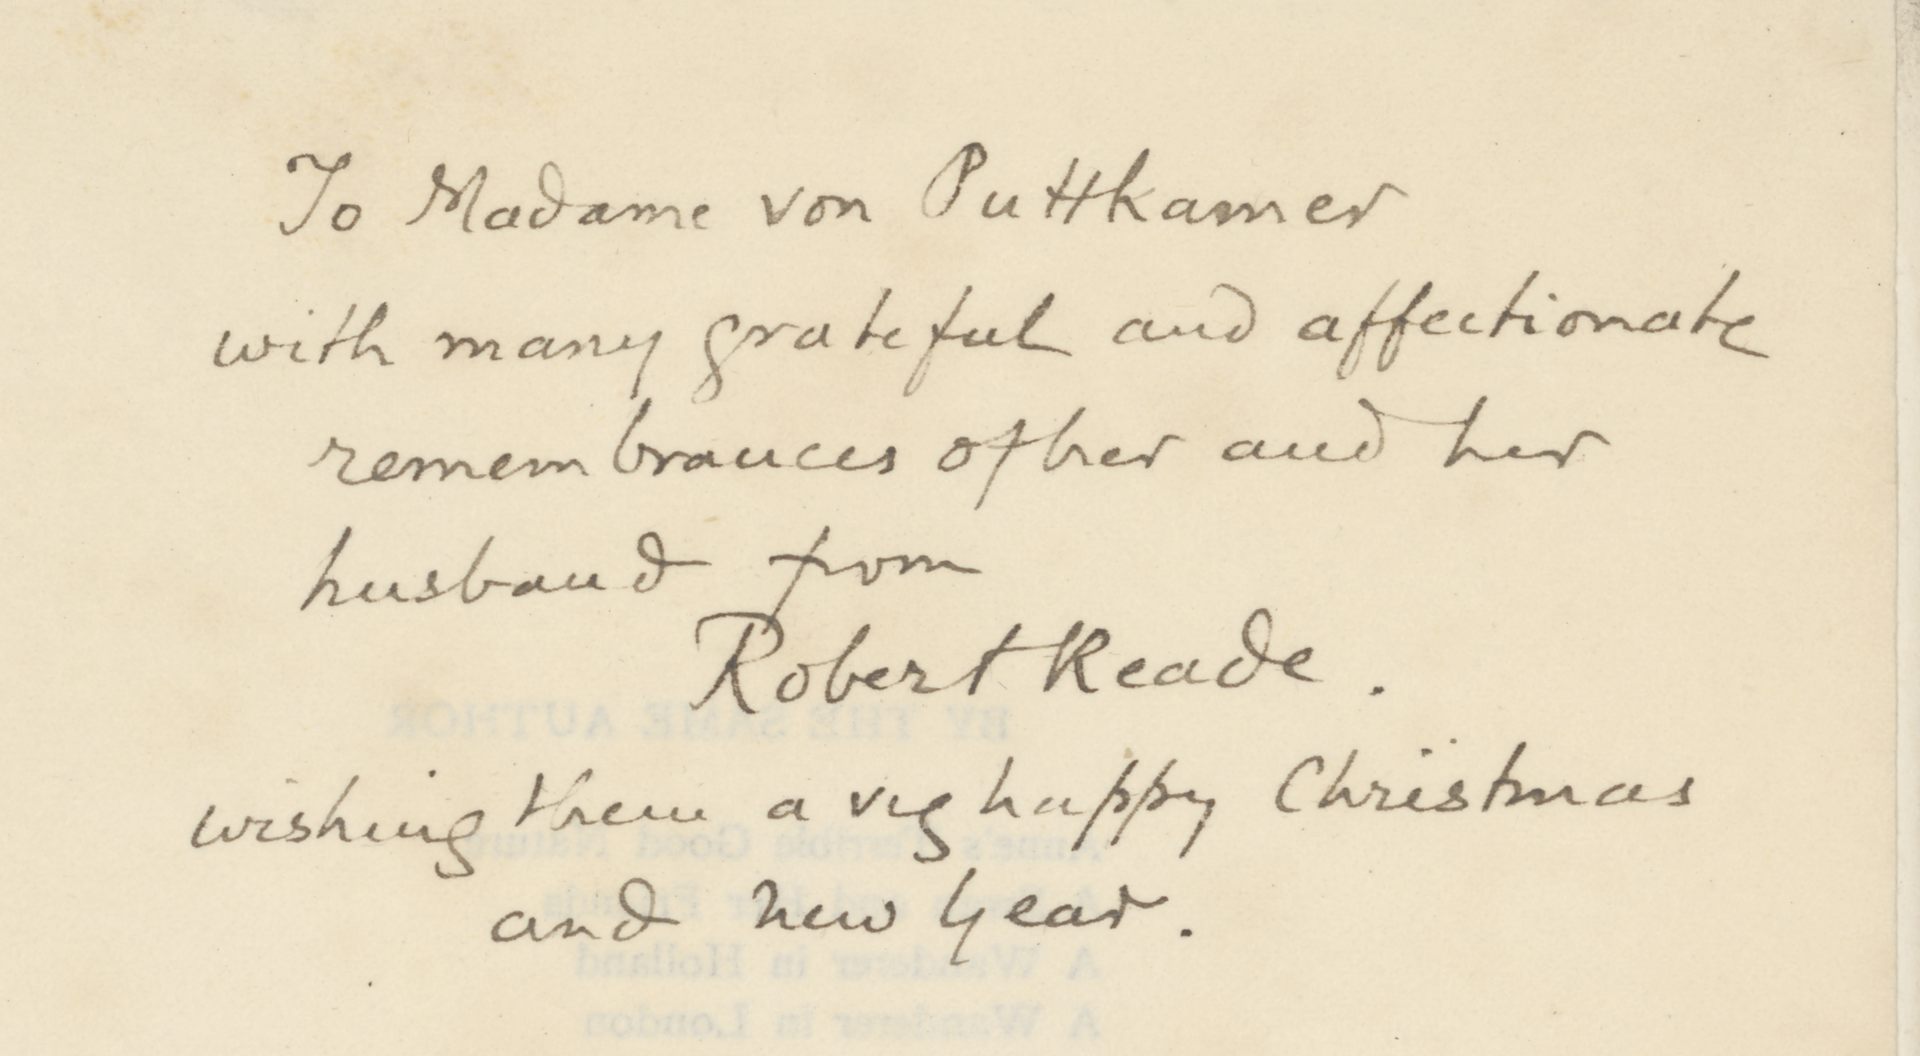 To Madame von Puttkamer
with many grateful and affectionate
remembrances of her and her
husband from
Robert Reade.
BY THE SAME AUTHOR
wishing them a very happy Christmas
Anne's Terrible Good Nature
and New Year.
A Wanderer in Holland
A Wanderer in London